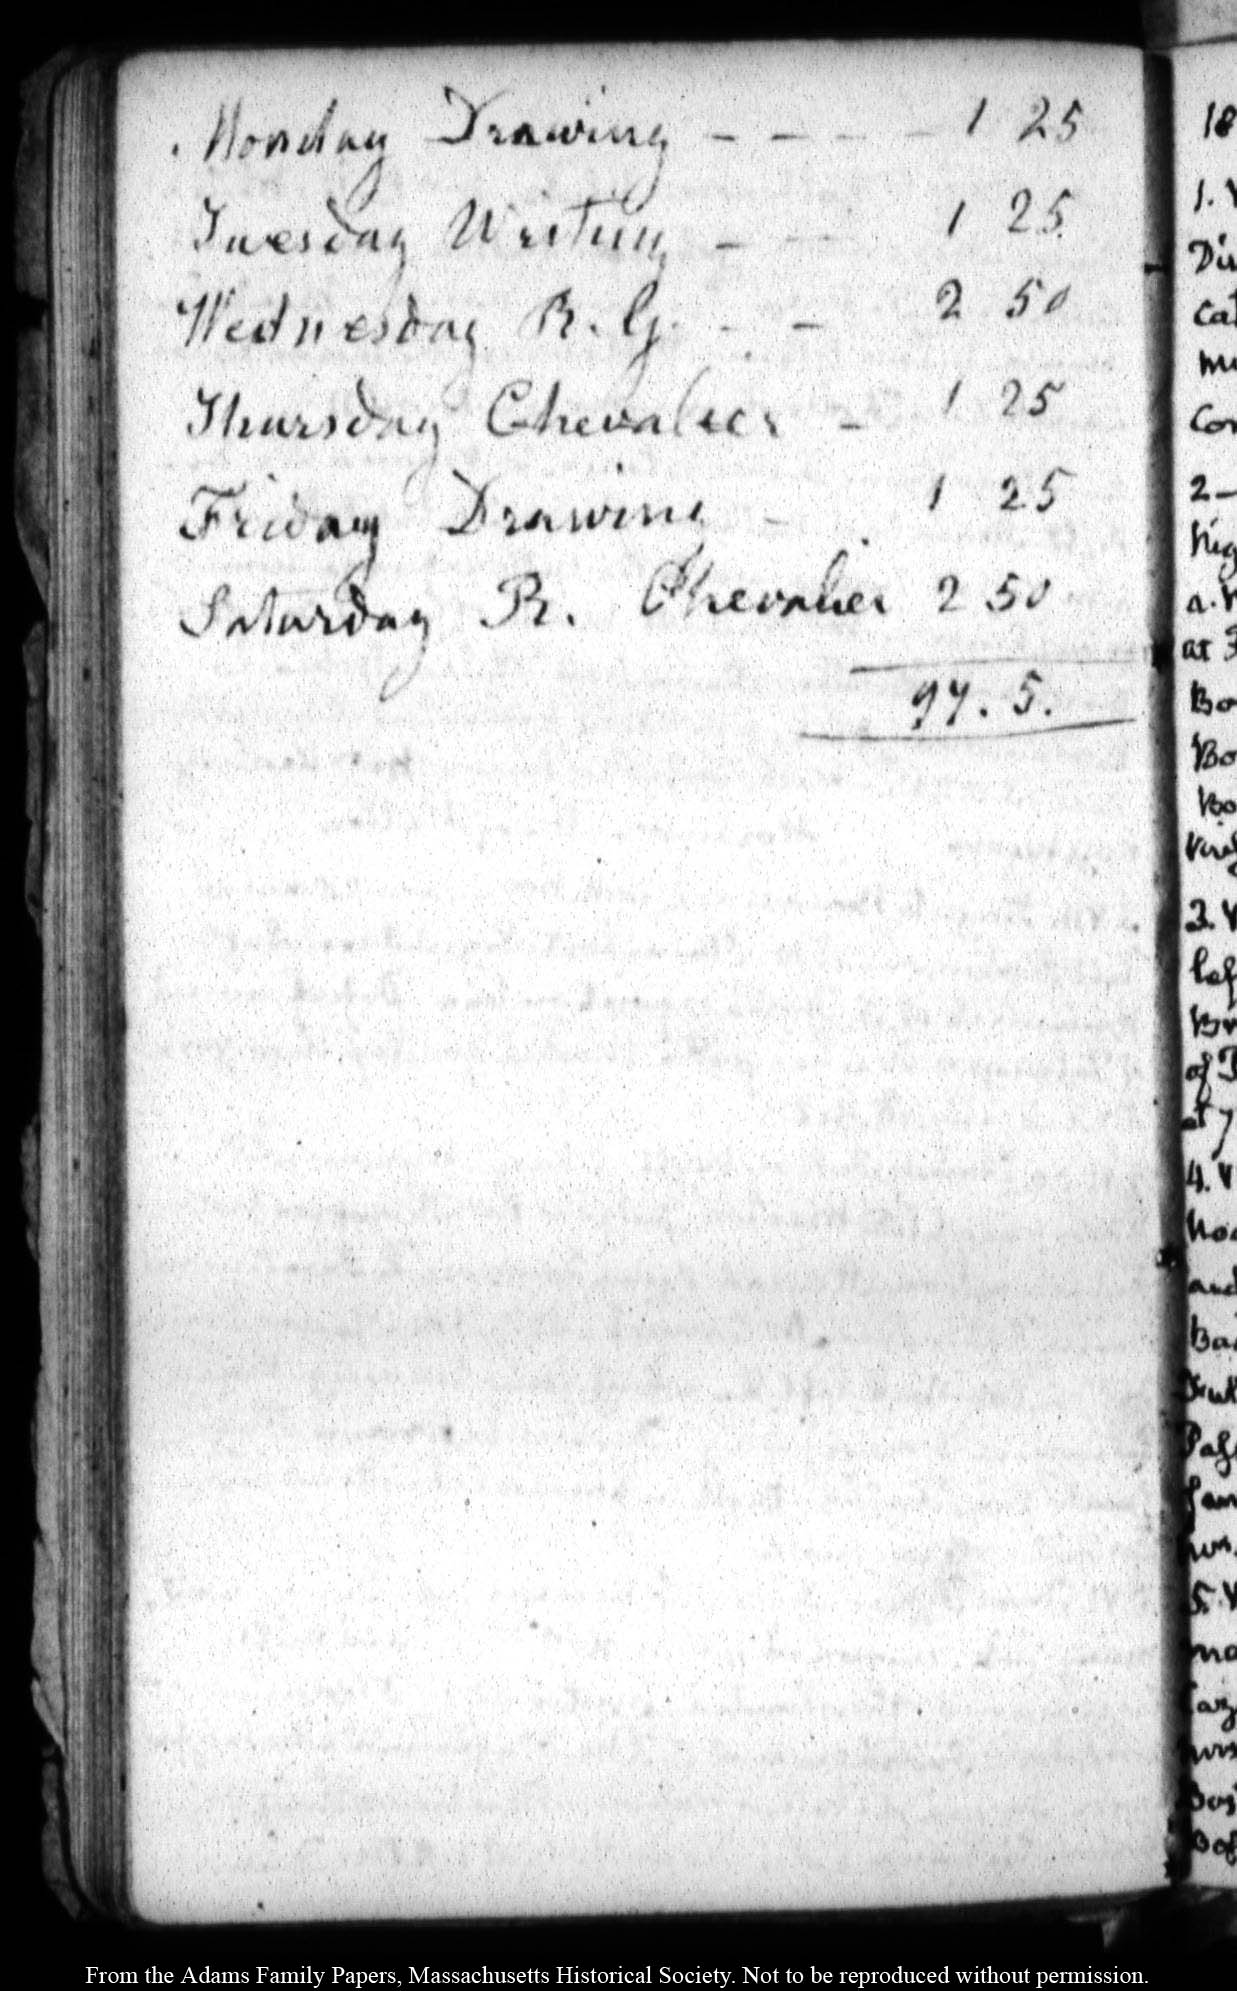 Monday Drawing - - - - 1 25
Tuesday Writing - - 1 25
Wednesday R. G. - - 2 50
Thursday Chevalier - 1 25
Friday Drawing - 1 25
Saturday R. Chevalier 2 50
97. 5.
18
1.
Dis
cat
Con
2-
nig
at
Bo
Bo
Bo
3.
lef
of
at 7
4.
and
5.
From the Adams Family Papers, Massachusetts Historical Society. Not to be reproduced without permission.